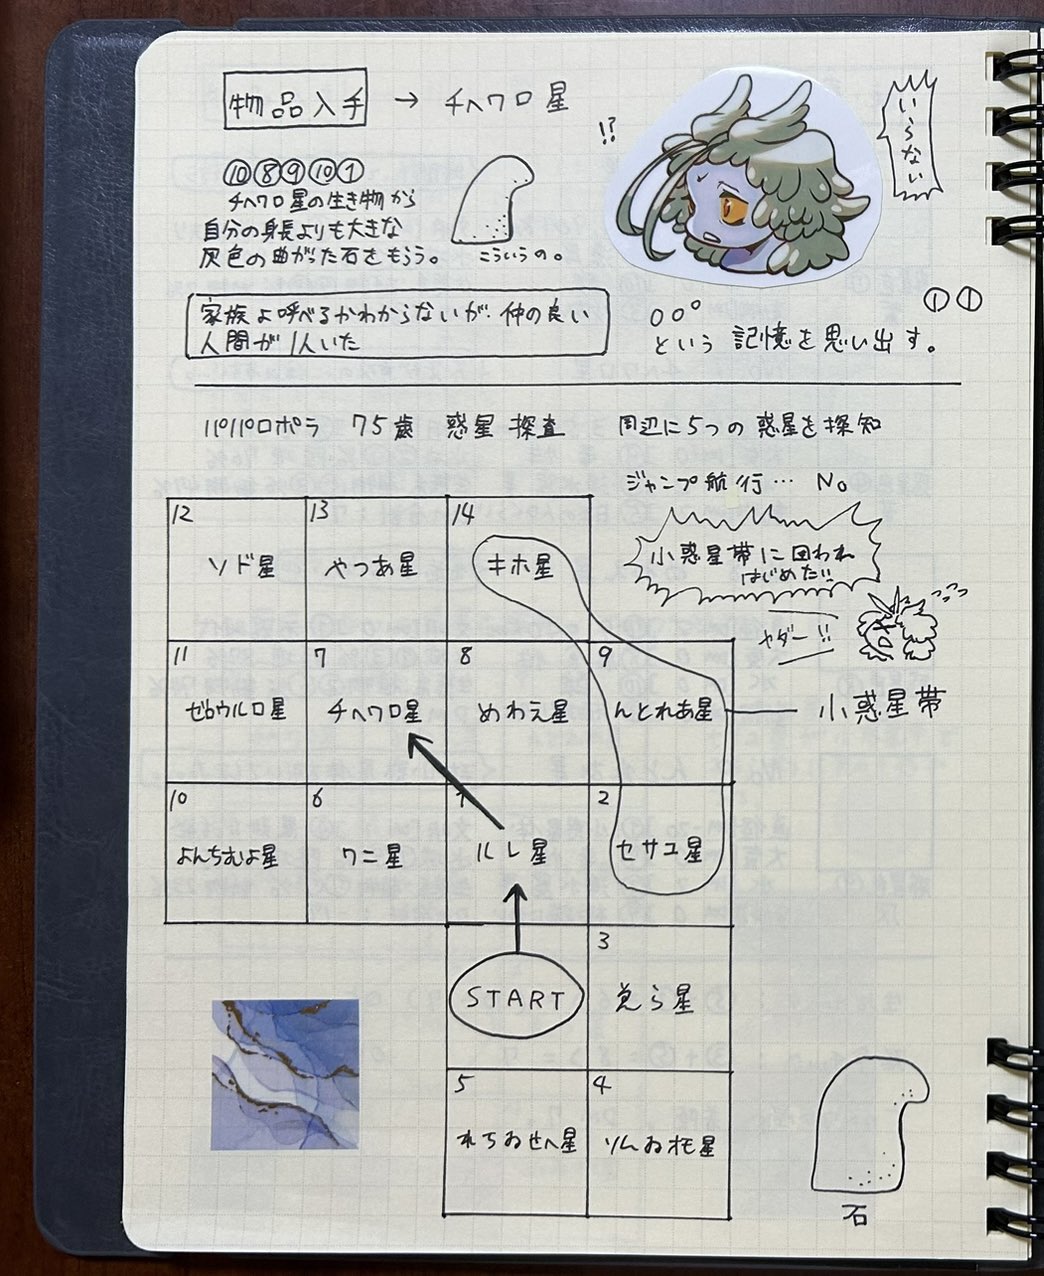 物品入手 → チヘワロ星
!?
いらない
⑩⑧⑨⑩①
チヘワロ星の生き物から
自分の身長よりも大きな
灰色の曲がった石をもらう。
こういうの。
①①
家族よ呼べるかわからないが、仲の良い
人間が1人いた
という記憶を思い出す。
パパロポラ 75歳 惑星探査 周辺に5つの惑星を探知
ジャンプ航行… No
小惑星帯に囲われ
はじめた!!
ヤダー!!
12 13 14
ソド星 やつあ星 キホ星
11 7 8 9
ゼロウルロ星 チヘワロ星 めわえ星 んとれあ星
小惑星帯
10 6 1 2
よんちむよ星 ワニ星 ルレ星 セサユ星
3
START 覚ら星
5 4
れちおせへ星 リんおモ星
石